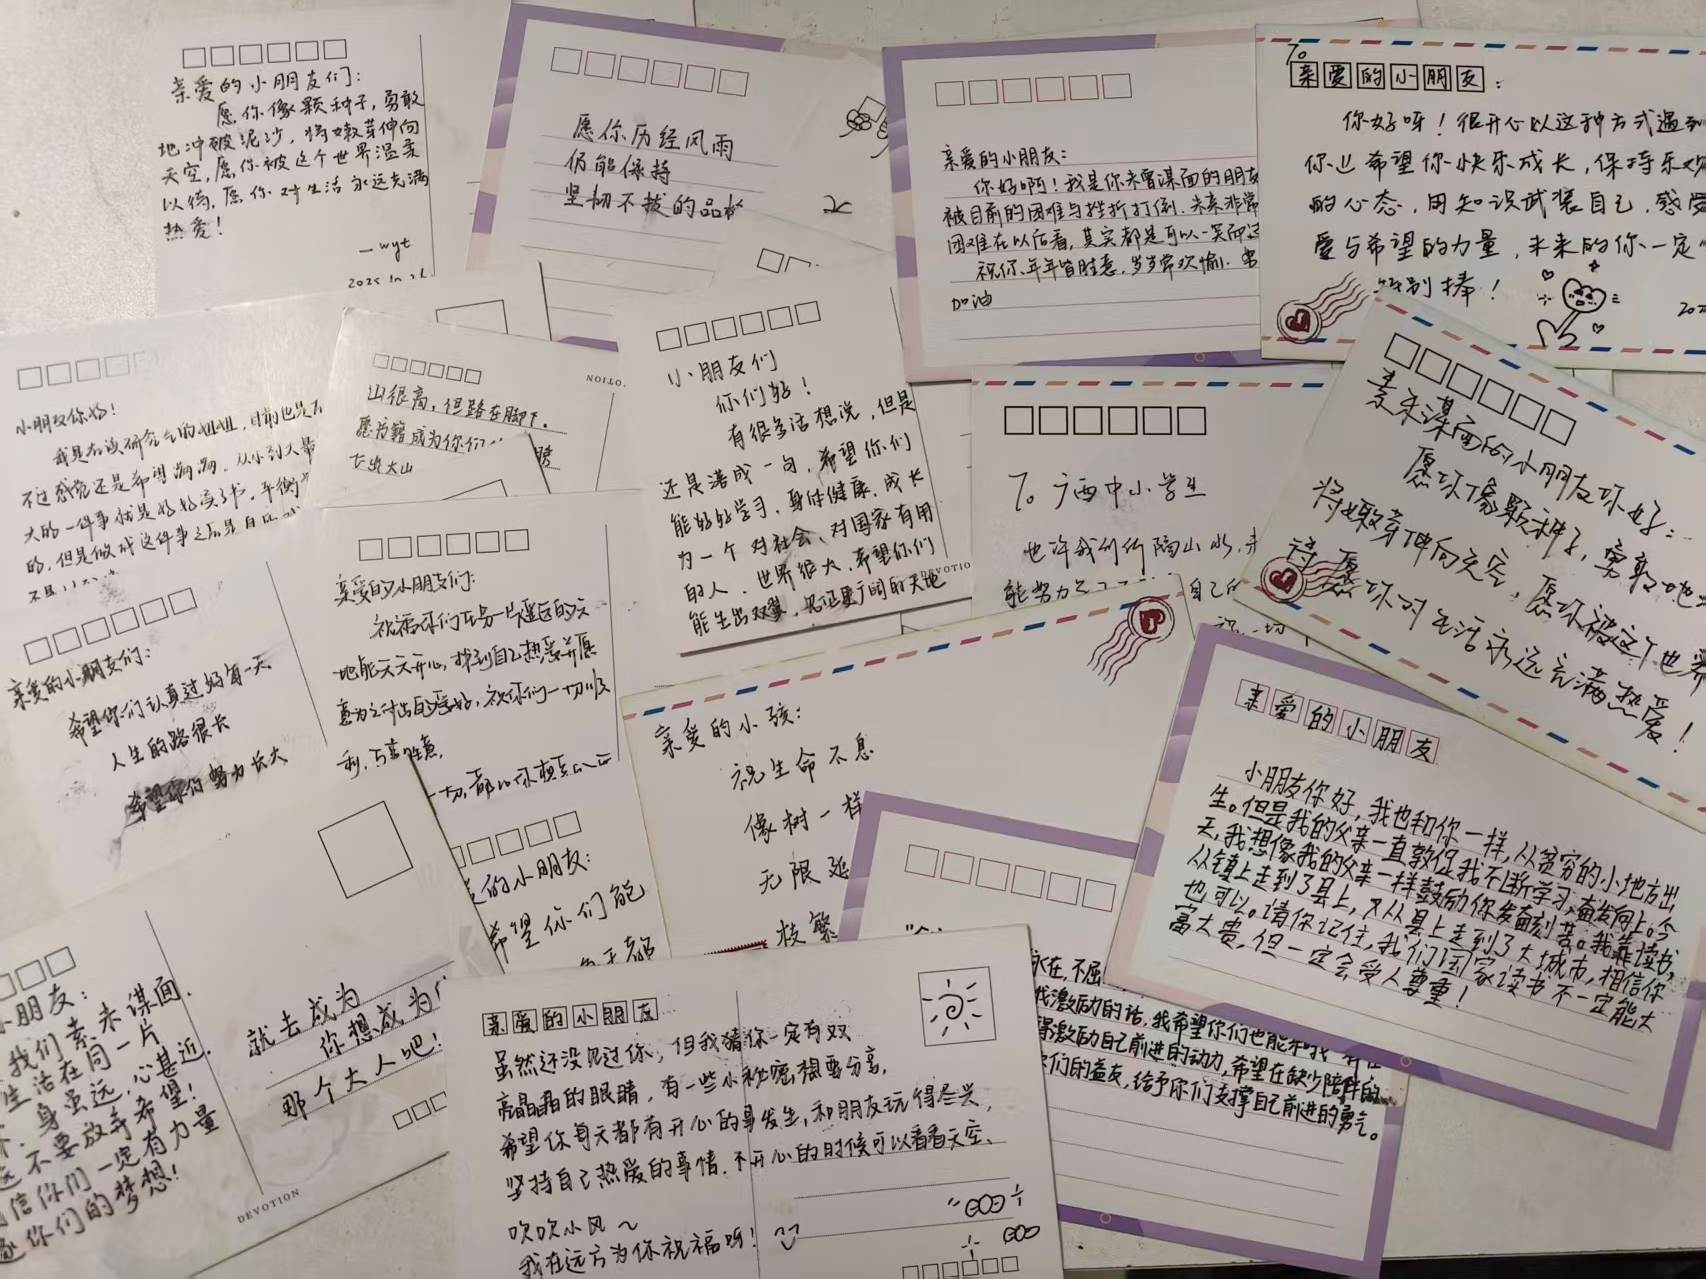 亲爱的小朋友们：
愿你像颗种子，勇敢
地冲破泥沙，将嫩芽伸向
天空，愿你被这个世界温柔
以待，愿你对生活永远充满
热爱！
—wyt
愿你历经风雨
仍能保持
坚韧不拔的品
亲爱的小朋友：
你好啊！我是你未曾谋面的朋友
被目前的困难与挫折打倒，未来非常
困难在以后看，其实都是可以一笑而过
祝你、年年皆胜意，岁岁常欢愉
加油
To
亲爱的小朋友：
你好呀！很开心以这种方式遇到
你也希望你快乐成长，保持乐观
的心态，用知识武装自己，感受
爱与希望的力量，未来的你一定
特别棒！
小朋友你好！
我是在读研究生的姐姐，目前也是
不过感觉还是希望
大的一件事就是好好读了书，平衡
的，但是做成这件事之后是自
山很高，但路在脚下。
愿书籍成为你们
飞出大山
小朋友们
你们好！
有很多话想说，但是
还是凑成一句，希望你们
能好好学习，身体健康，成长
为一个对社会、对国家有用
的人，世界很大，希望你们
能生出双翼，见证更广阔的天地
DEVOTIO
To 广西中小学生
也许我们所隔山水，
能努力
自己的
祝一切
素未谋面的小朋友你好：
愿你像颗种子，勇敢地
将嫩芽伸向天空，愿你被这个世界
待，愿你对生活永远充满热爱！
亲爱的小朋友们：
希望你们认真过好每一天
人生的路很长
希望你们努力长大
亲爱的小朋友们：
祝福你们在另一片遥远的土
地能天天开心，找到自己热爱并愿
意为之付出的爱好，祝你们一切顺
利，万事胜意，
亲爱的小孩：
祝生命不息
像树一样
无限延
枝繁
的小朋友：
希望你们能
亲爱的小朋友
小朋友你好，我也和你一样，从贫穷的小地方出
生。但是我的父亲一直敦促我不断学习，奋发向上。今
天，我想像我的父亲一样鼓励你发奋刻苦。我靠读书，
从镇上走到了县上，又从县上走到了大城市，相信你
也可以。请你记住，我们国家读书不一定能大
富大贵，但一定会受人尊重！
永在，不屈
我激励的话，我希望你们也能
激励自己前进的动力，希望在缺少陪伴的
们的益友，给予你们支撑自己前进的勇气。
小朋友：
我们素未谋面，
生活在同一片
，身虽远，心甚近，
不要放弃希望！
信你们一定有力量
你们的梦想！
就去成为
你想成为
那个大人吧！
DEVOTION
亲爱的小朋友
虽然还没见过你，但我猜你一定有双
亮晶晶的眼睛，有一些小秘密想要分享，
希望你每天都有开心的事发生，和朋友玩得尽兴，
坚持自己热爱的事情，不开心的时候可以看看天空、
吹吹小风～
我在远方为你祝福呀！